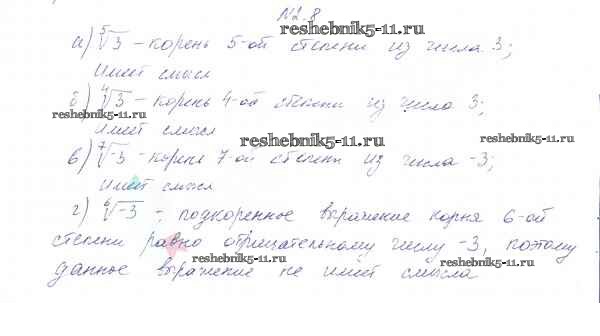 №2.8
reshebnik5-11.ru
а) ⁵√3 – корень 5-ой степени из числа 3;
reshebnik5-11.ru
Имеет смысл
б) ⁴√3 – корень 4-ой степени из числа 3;
reshebnik5-11.ru
Имеет смысл
reshebnik5-11.ru reshebnik5-11.ru
в) ⁷√-3 – корень 7-ой степени из числа -3;
Имеет смысл
г) ⁶√-3 – подкоренное выражение корня 6-ой
степени равно отрицательному числу -3, поэтому
reshebnik5-11.ru reshebnik5-11.ru
данное выражение не имеет смысла